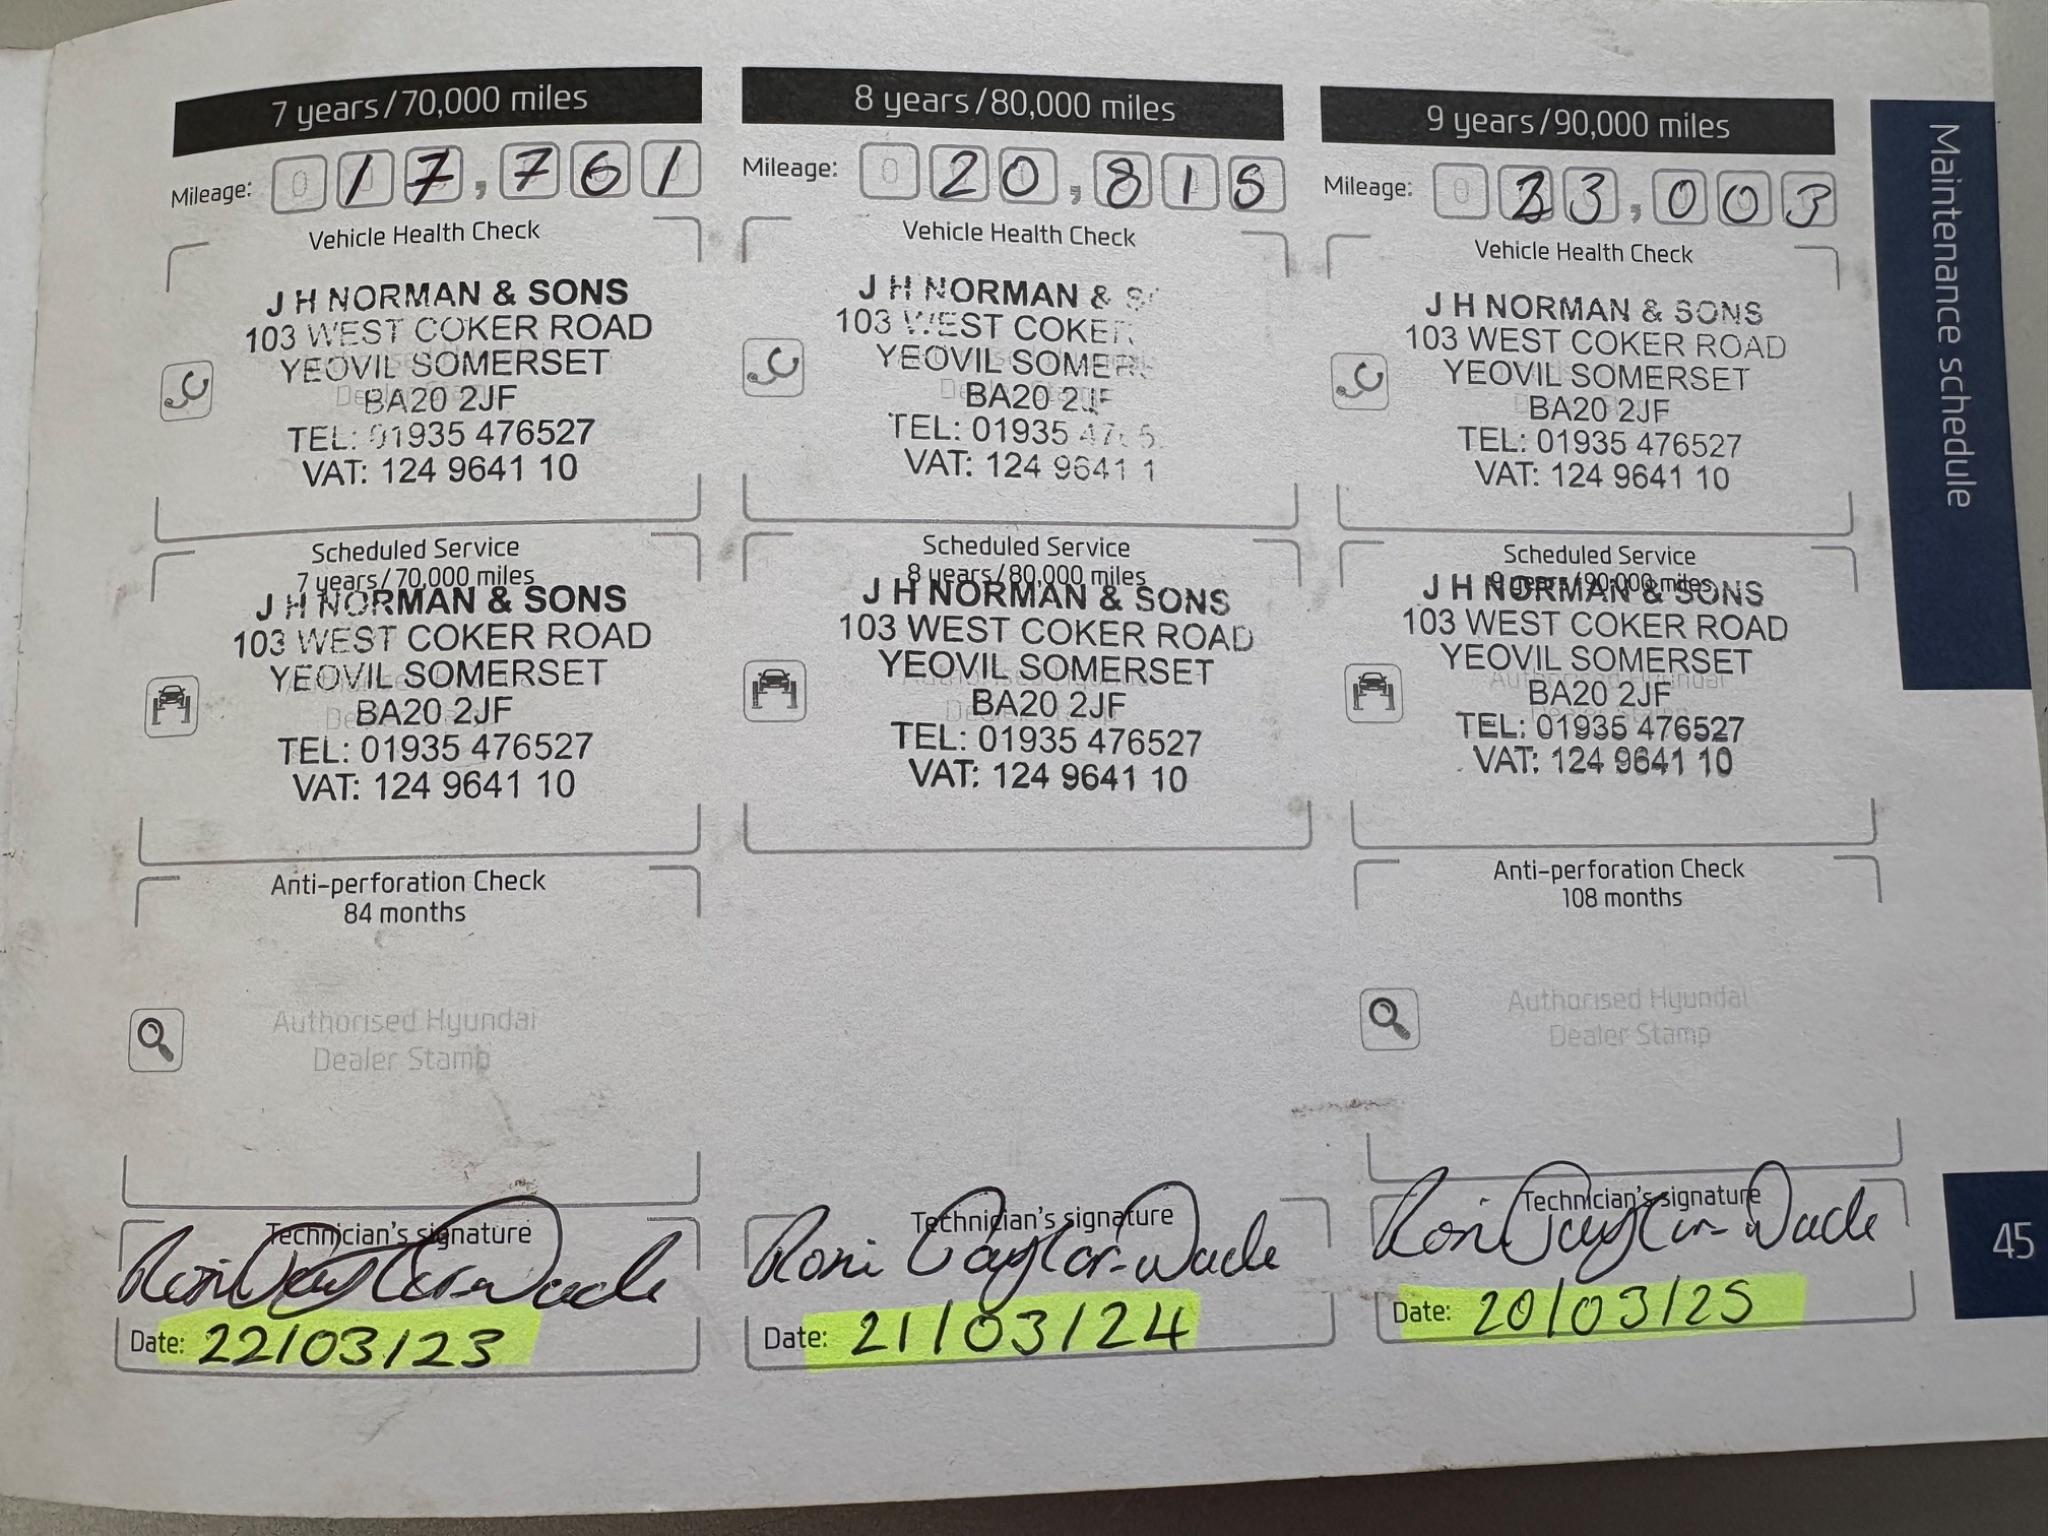 7 years/70,000 miles
Mileage: 017,761
Vehicle Health Check
J H NORMAN & SONS
103 WEST COKER ROAD
YEOVIL SOMERSET
BA20 2JF
TEL: 01935 476527
VAT: 124 9641 10
Scheduled Service
7 years/70,000 miles
J H NORMAN & SONS
103 WEST COKER ROAD
YEOVIL SOMERSET
BA20 2JF
TEL: 01935 476527
VAT: 124 9641 10
Anti-perforation Check
84 months
Authorised Hyundai
Dealer Stamp
Technician's signature
Roni Taylor-Wade
Date: 22/03/23
8 years/80,000 miles
Mileage: 020,815
Vehicle Health Check
J H NORMAN & S
103 WEST COKER
YEOVIL SOMERS
BA20 2JF
TEL: 01935 47
VAT: 124 9641 1
Scheduled Service
8 years/80,000 miles
J H NORMAN & SONS
103 WEST COKER ROAD
YEOVIL SOMERSET
BA20 2JF
TEL: 01935 476527
VAT: 124 9641 10
Technician's signature
Roni Taylor-Wade
Date: 21/03/24
9 years/90,000 miles
Mileage: 023,003
Vehicle Health Check
J H NORMAN & SONS
103 WEST COKER ROAD
YEOVIL SOMERSET
BA20 2JF
TEL: 01935 476527
VAT: 124 9641 10
Scheduled Service
9 years/90,000 miles
J H NORMAN & SONS
103 WEST COKER ROAD
YEOVIL SOMERSET
BA20 2JF
TEL: 01935 476527
VAT: 124 9641 10
Anti-perforation Check
108 months
Authorised Hyundai
Dealer Stamp
Technician's signature
Roni Taylor-Wade
Date: 20/03/25
Maintenance schedule
45